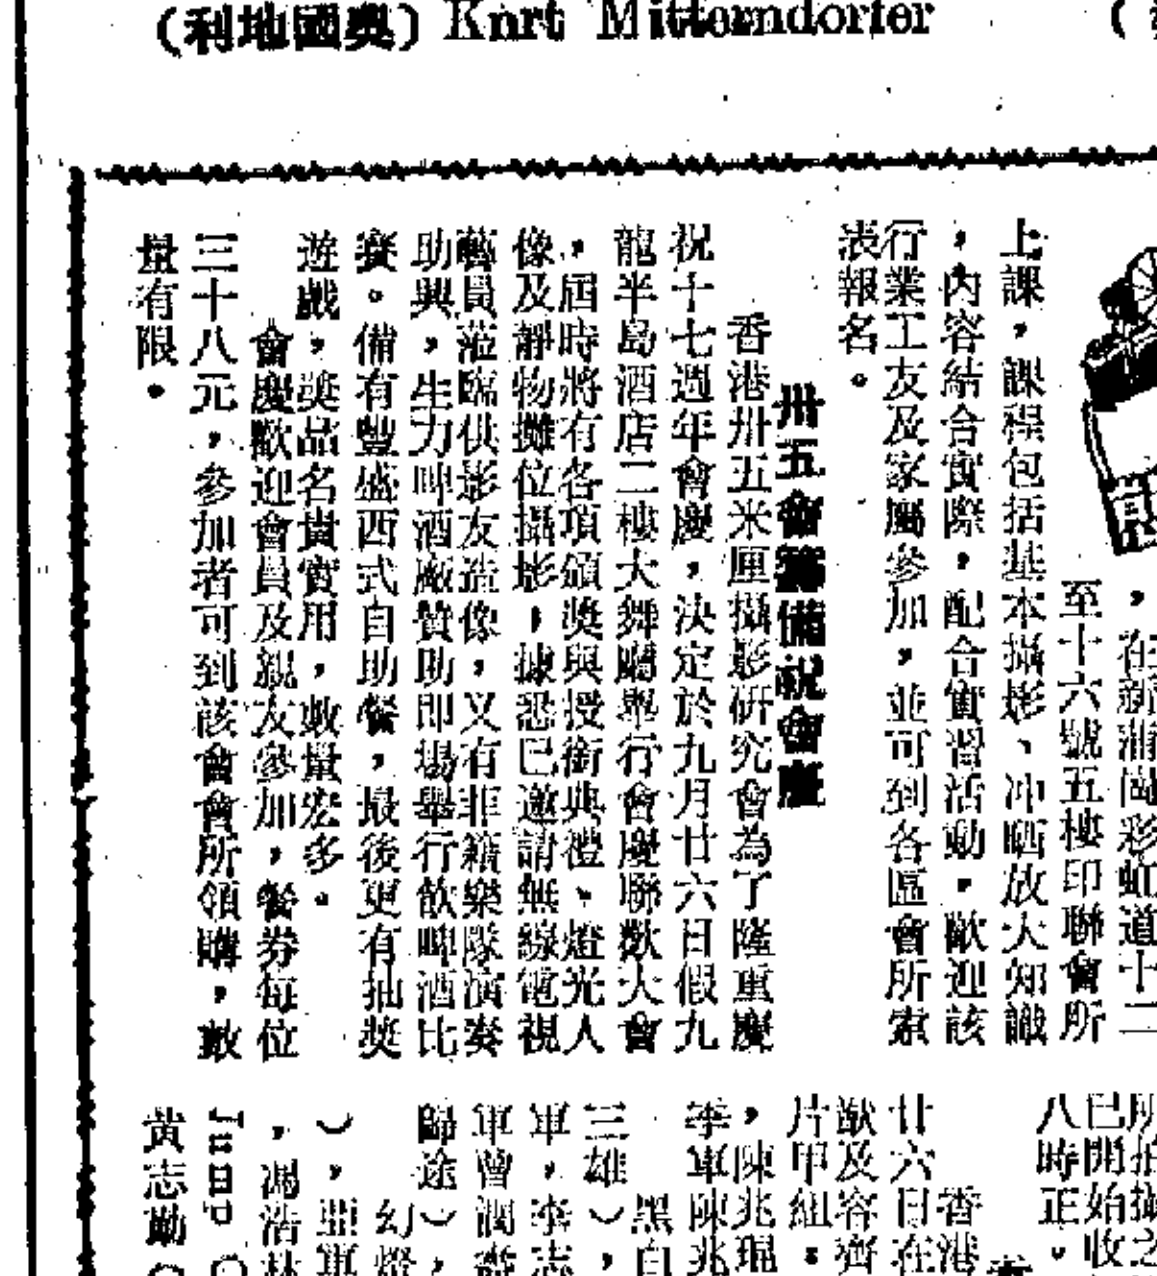 (利地國奧) Knrt Mitterndorfer
，在新蒲崗彩虹道十二
至十六號五樓印聯會所
上課，課程包括基本攝影、冲晒放大知識
，內容結合實際，配合實習活動，歡迎該
行業工友及家屬參加，並可到各區會所索
表報名。
卅五會籌備祝會慶
香港卅五米厘攝影研究會為了隆重慶
祝十七週年會慶，決定於九月廿六日假九
龍半島酒店二樓大舞廳舉行會慶聯歡大會
，屆時將有各項頒奬與授銜典禮、燈光人
像及靜物攤位攝影，據悉已邀請無線電視
藝員蒞臨供影友造像，又有菲籍樂隊演奏
助興，生力啤酒廠贊助即塲舉行飲啤酒比
賽。備有豐盛西式自助餐，最後更有抽奬
遊戲，奬品名貴實用，數量宏多。
會慶歡迎會員及親友參加，餐券每位
三十八元，參加者可到該會會所領購，數
量有限。
所拍攝之
已開始收
八時正。
香港
廿六日在
猷及容齊
片甲組：
，陳兆琨
季軍陳兆
黑白
三雄），
軍，李志
軍曾潤
歸途），
幻燈
），亞軍
，馮浩林
黄志勤（